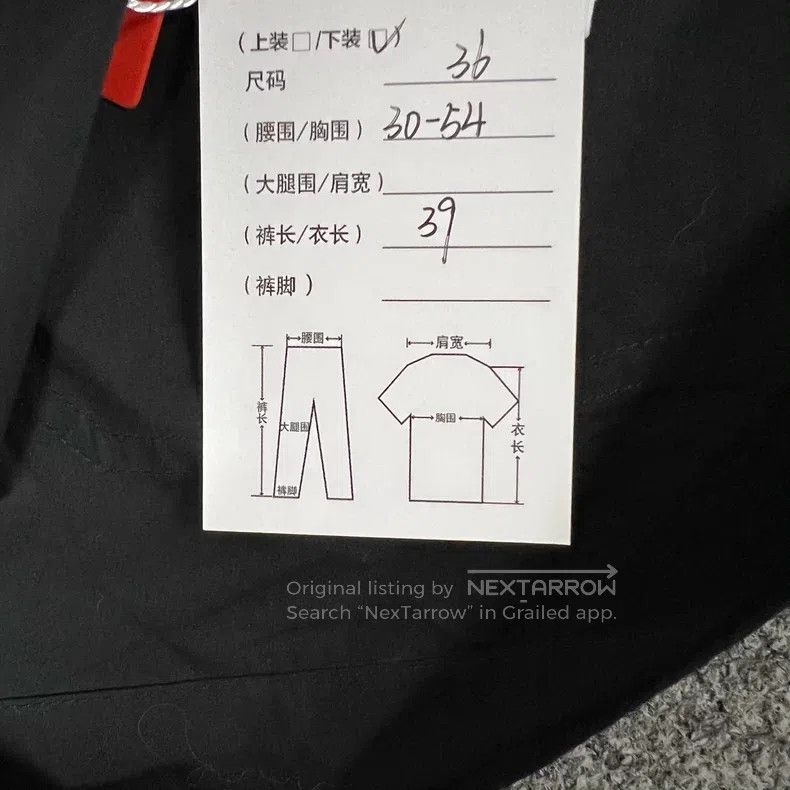 (上装□/下装☑)
尺码 36
(腰围/胸围) 30-54
(大腿围/肩宽)
(裤长/衣长) 39
(裤脚)
腰围
肩宽
裤长
大腿围
胸围
衣长
裤脚
Original listing by NEXTARROW
Search “NexTarrow” in Grailed app.